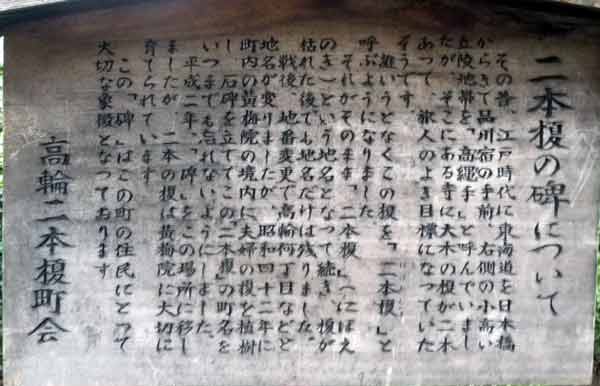 二本榎の碑について
その昔、江戸時代に東海道を日本橋
からきて品川宿の手前、右側の小高い
丘陵地帯を「高縄手」と呼んでいまし
たが、そこにある寺に大木の榎が二本
あって、旅人のよき目標になっていた
そうです。
誰いうとなくこの榎を「二本榎」と
呼ぶようになりました。
それがそのまま「二本榎」(にほんえ
のき)という地名となって続き、榎が
枯れた後でも地名だけは残りました。
戦後、地番変更で高輪何丁目などと
地名が変りましたが、昭和四十二年に
町内の黄梅院の境内に夫婦の榎を植樹
し、石碑を立ててこの二本榎の町名を
いつまでも忘れないようにしました。
平成二年、「碑」をこの場所に移し
ましたが、二本の榎は黄梅院に大切に
育てられています。
この「碑」はこの町の住民にとって
大切な象徴となっております。
高輪二本榎町会